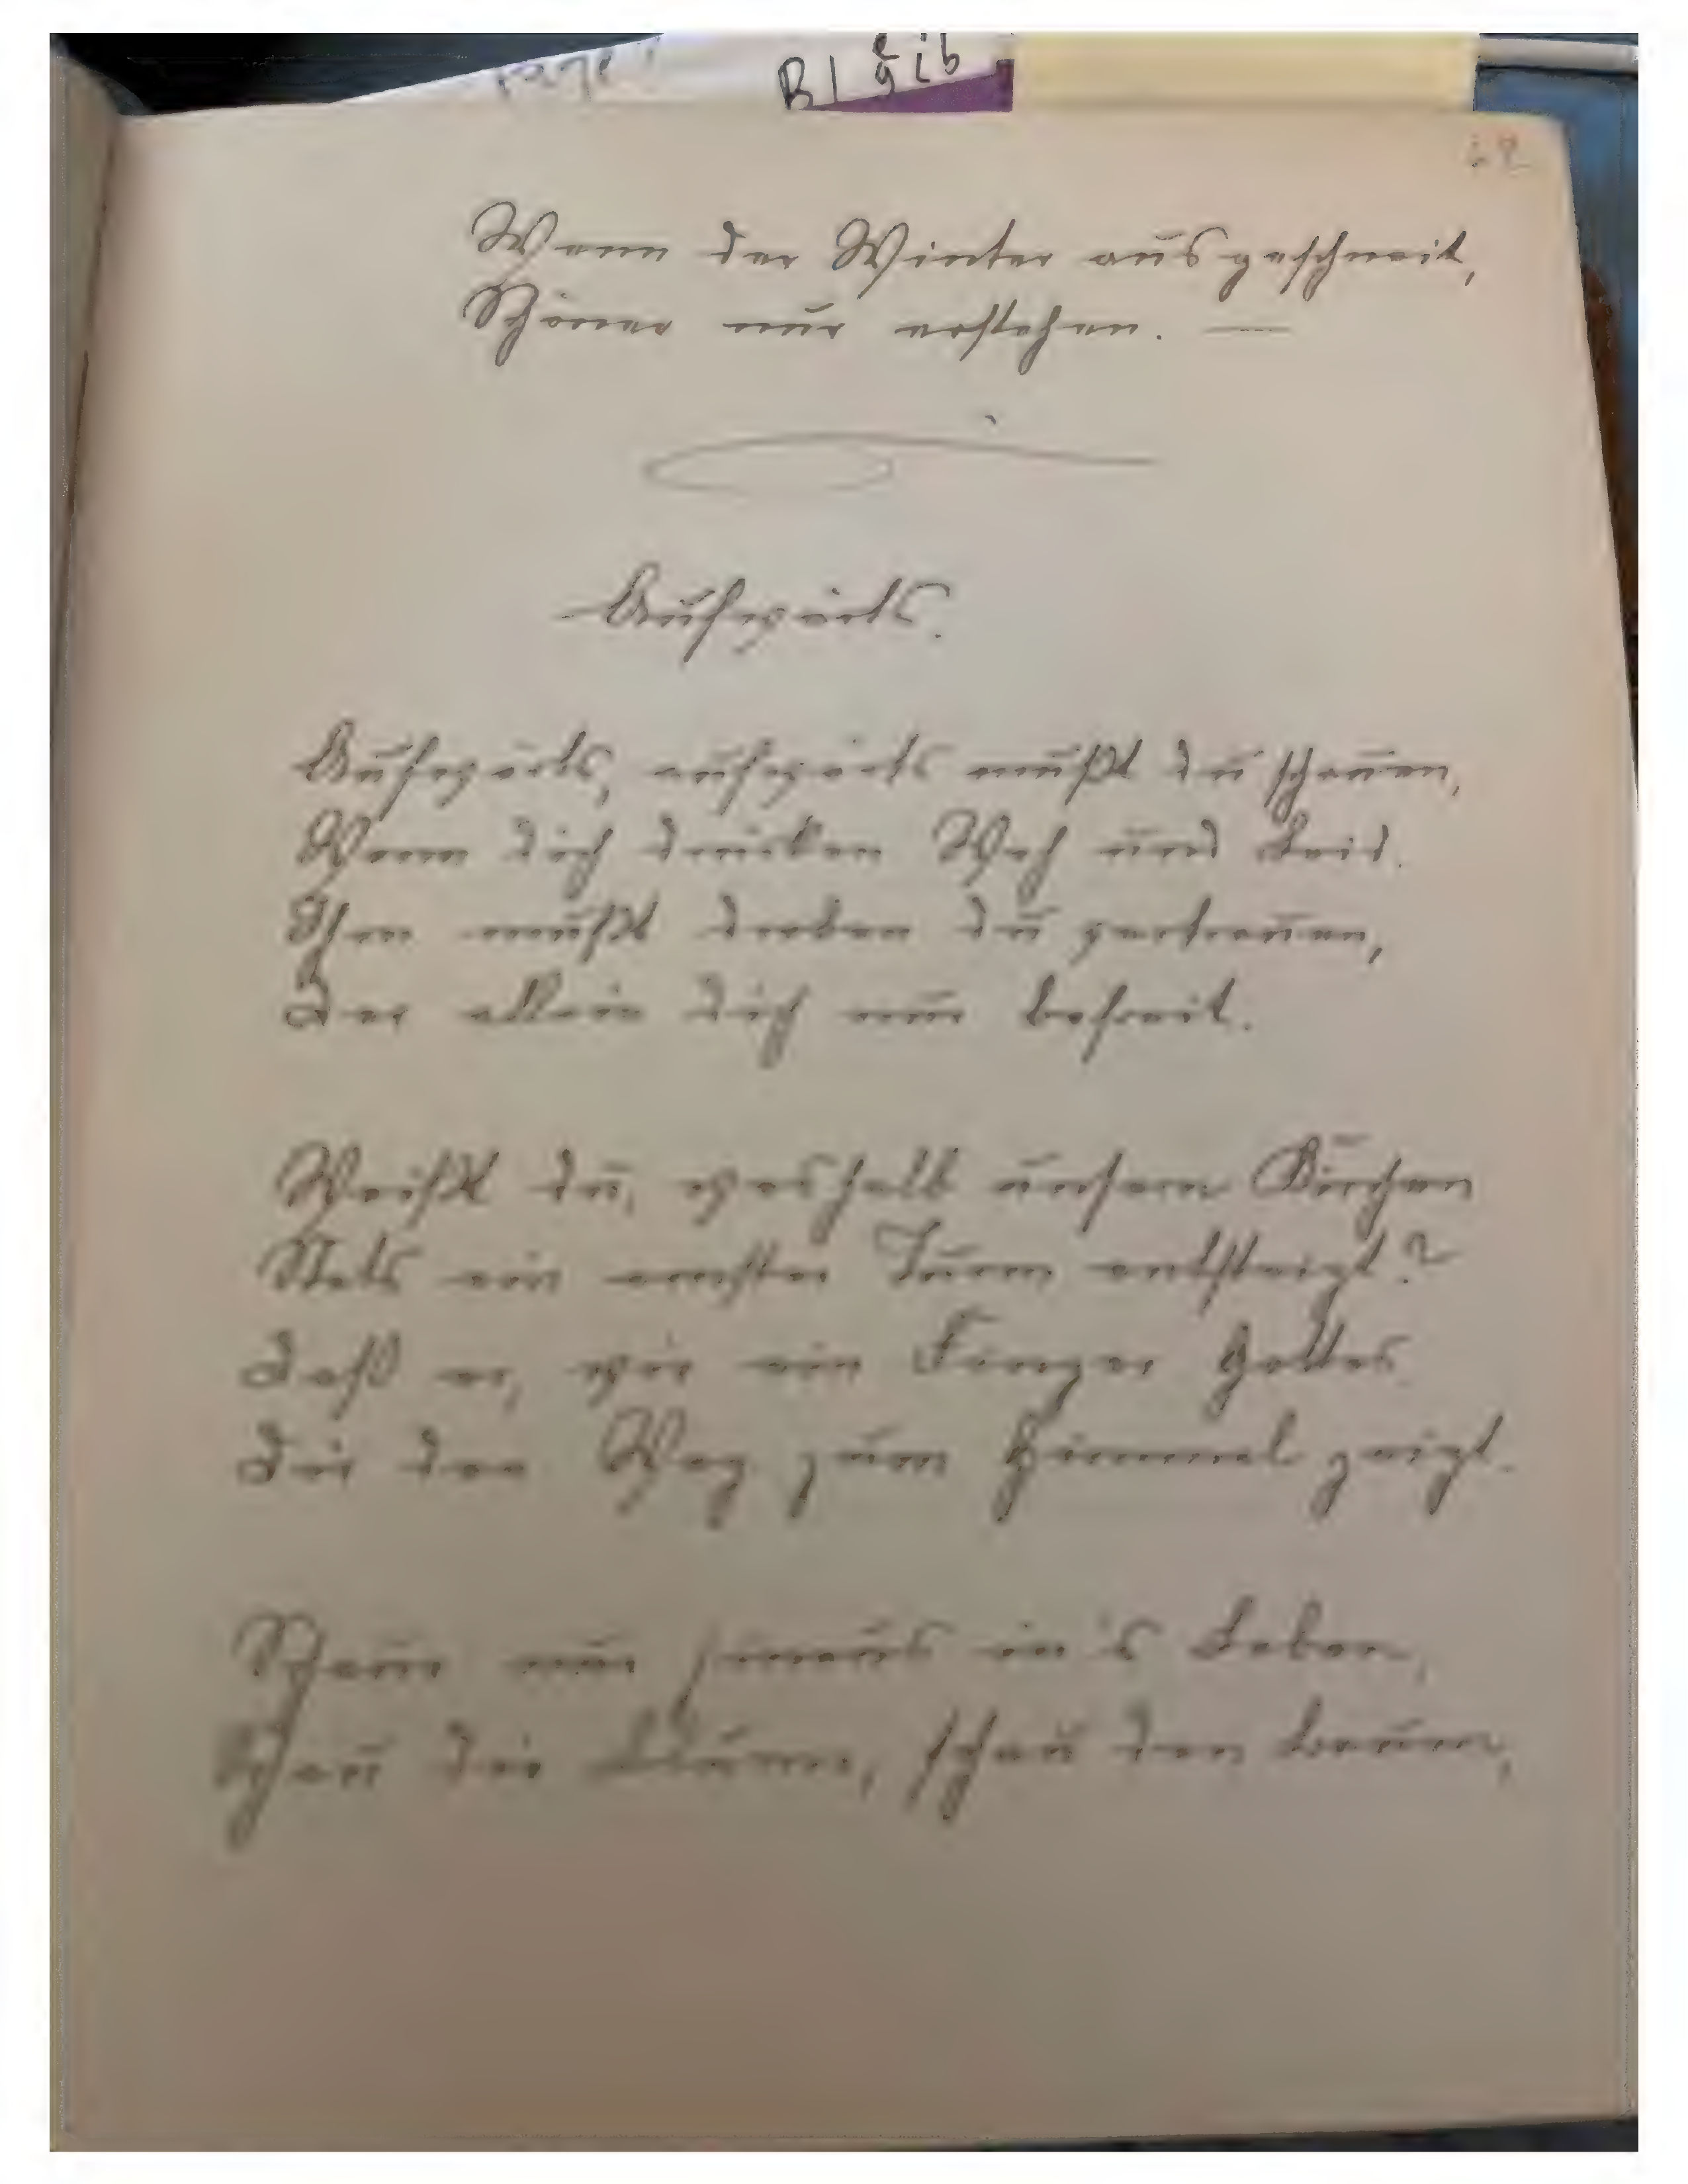 62
Wenn der Winter ausgeschneit,
Schöner nur erstehen. —
Aufwärts.
Aufwärts, aufwärts mußt du schauen,
Wenn dich drücken Weh und Leid.
Ihm mußt droben du vertrauen,
Der allein dich nur befreit.
Weißt du, weshalb unsern Kirchen
Stets ein ernster Turm entsteigt?
Daß er, wie ein Finger Gottes
Dir den Weg zum Himmel zeigt.
Schau nur hinaus in's Leben,
Schau die Blume, schau den Baum,